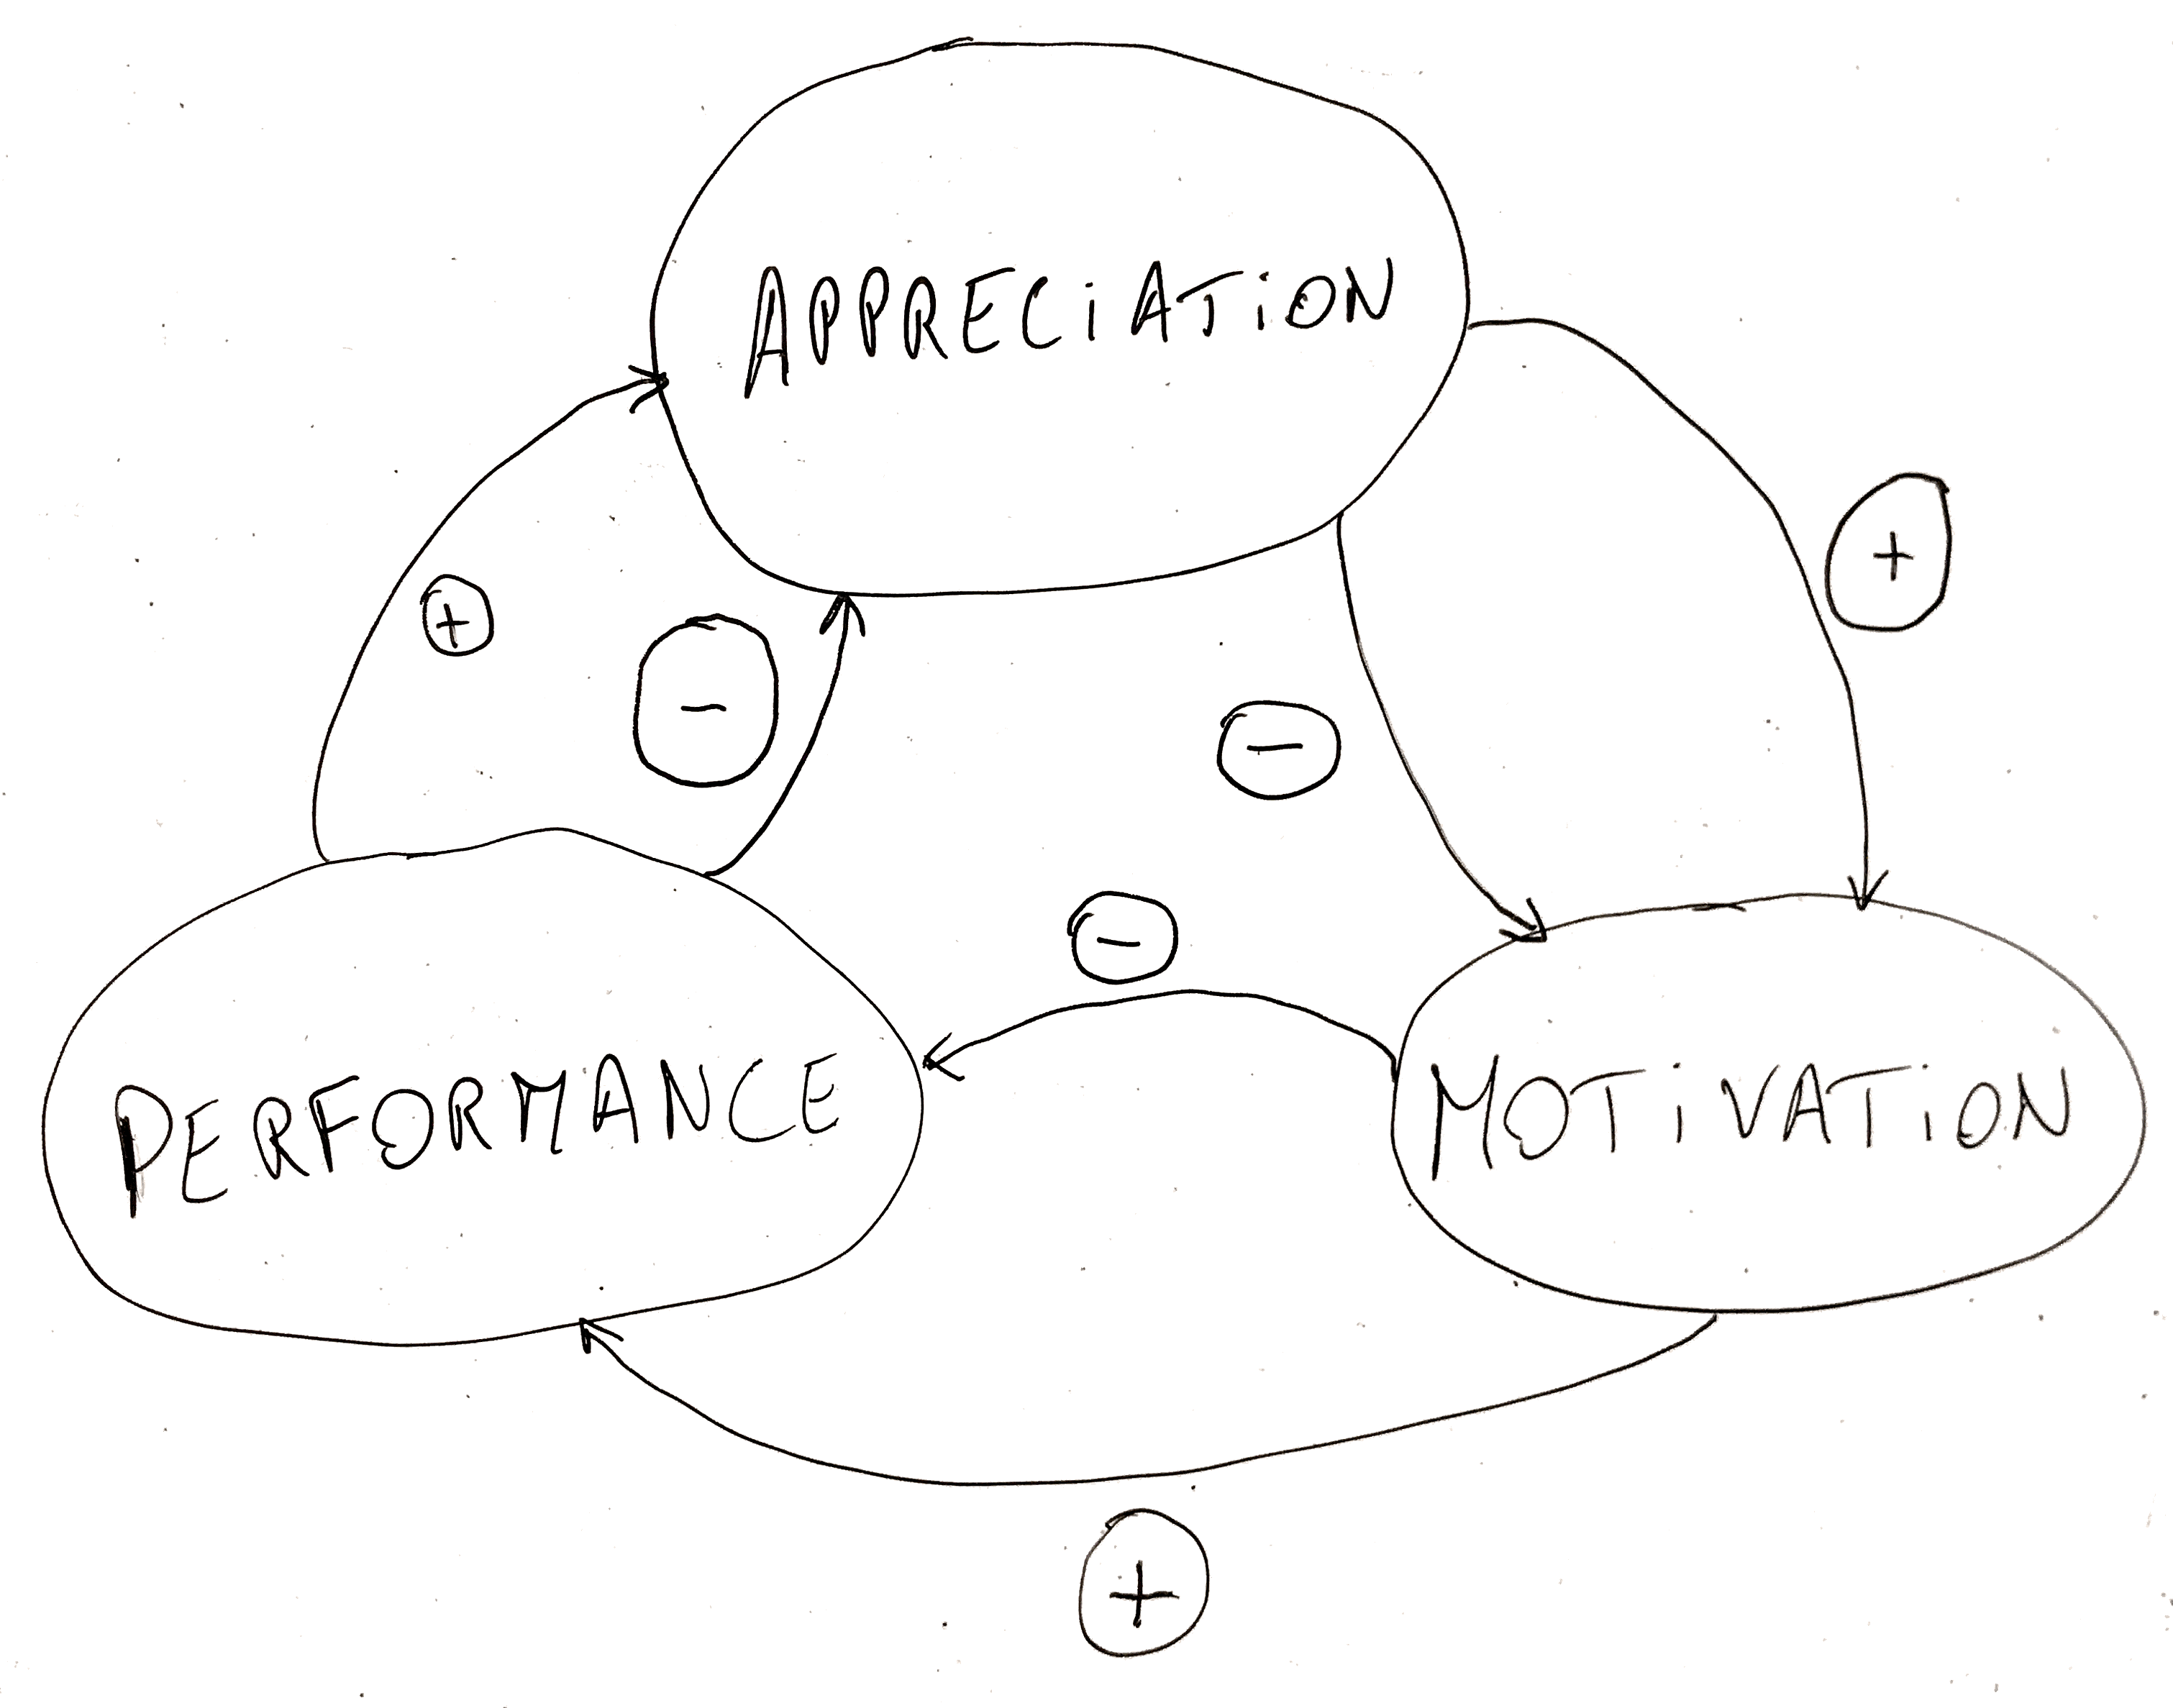 APPRECIATION
+
+
-
-
-
PERFORMANCE
MOTIVATION
+